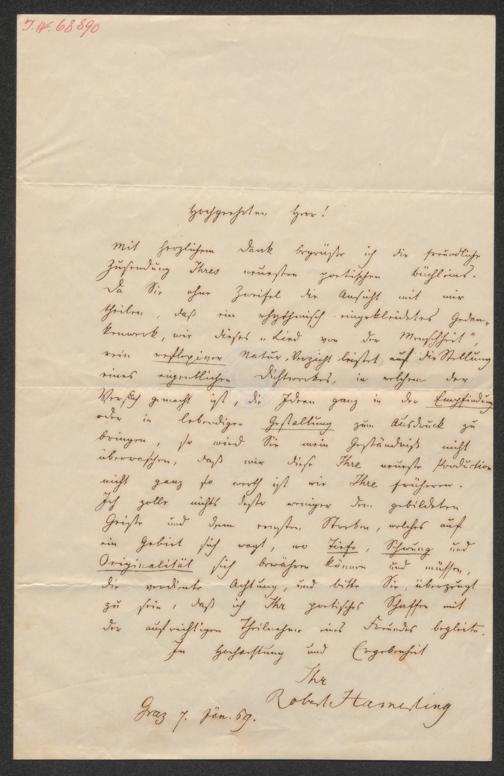 J. N. 68890
Hochgeehrter Herr!
Mit herzlichem Dank begrüße ich die freundliche
Zusendung Ihres neuesten poetischen Büchleins.
Da Sie ohne Zweifel die Ansicht mit mir
theilen, daß ein rhythmisch eingekleidetes Gedan-
kenwerk, wie dieses „Lied von der Menschheit",
rein reflexiver Natur, Verzicht leistet auf die Stellung
eines eigentlichen Dichterwerkes, in welchem der
Versuch gemacht ist, die Ideen ganz in der Empfindung
oder in lebendiger Gestaltung zum Ausdruck zu
bringen, so wird Sie mein Geständniß nicht
überraschen, daß mir diese Ihre neueste Production
nicht ganz so werth ist wie Ihre früheren.
Ich zolle nichts desto weniger dem gebildeten
Geiste und dem ernsten Streben, welches auf
ein Gebiet sich wagt, wo Tiefe, Schwung und
Originalität sich bewähren können und müssen,
die verdiente Achtung, und bitte Sie, überzeugt
zu sein, daß ich Ihr poetisches Schaffen mit
der aufrichtigen Theilnahme eines Freundes begleite.
In Hochachtung und Ergebenheit
Ihr
Robert Hamerling
Graz 7. Jän. 69.